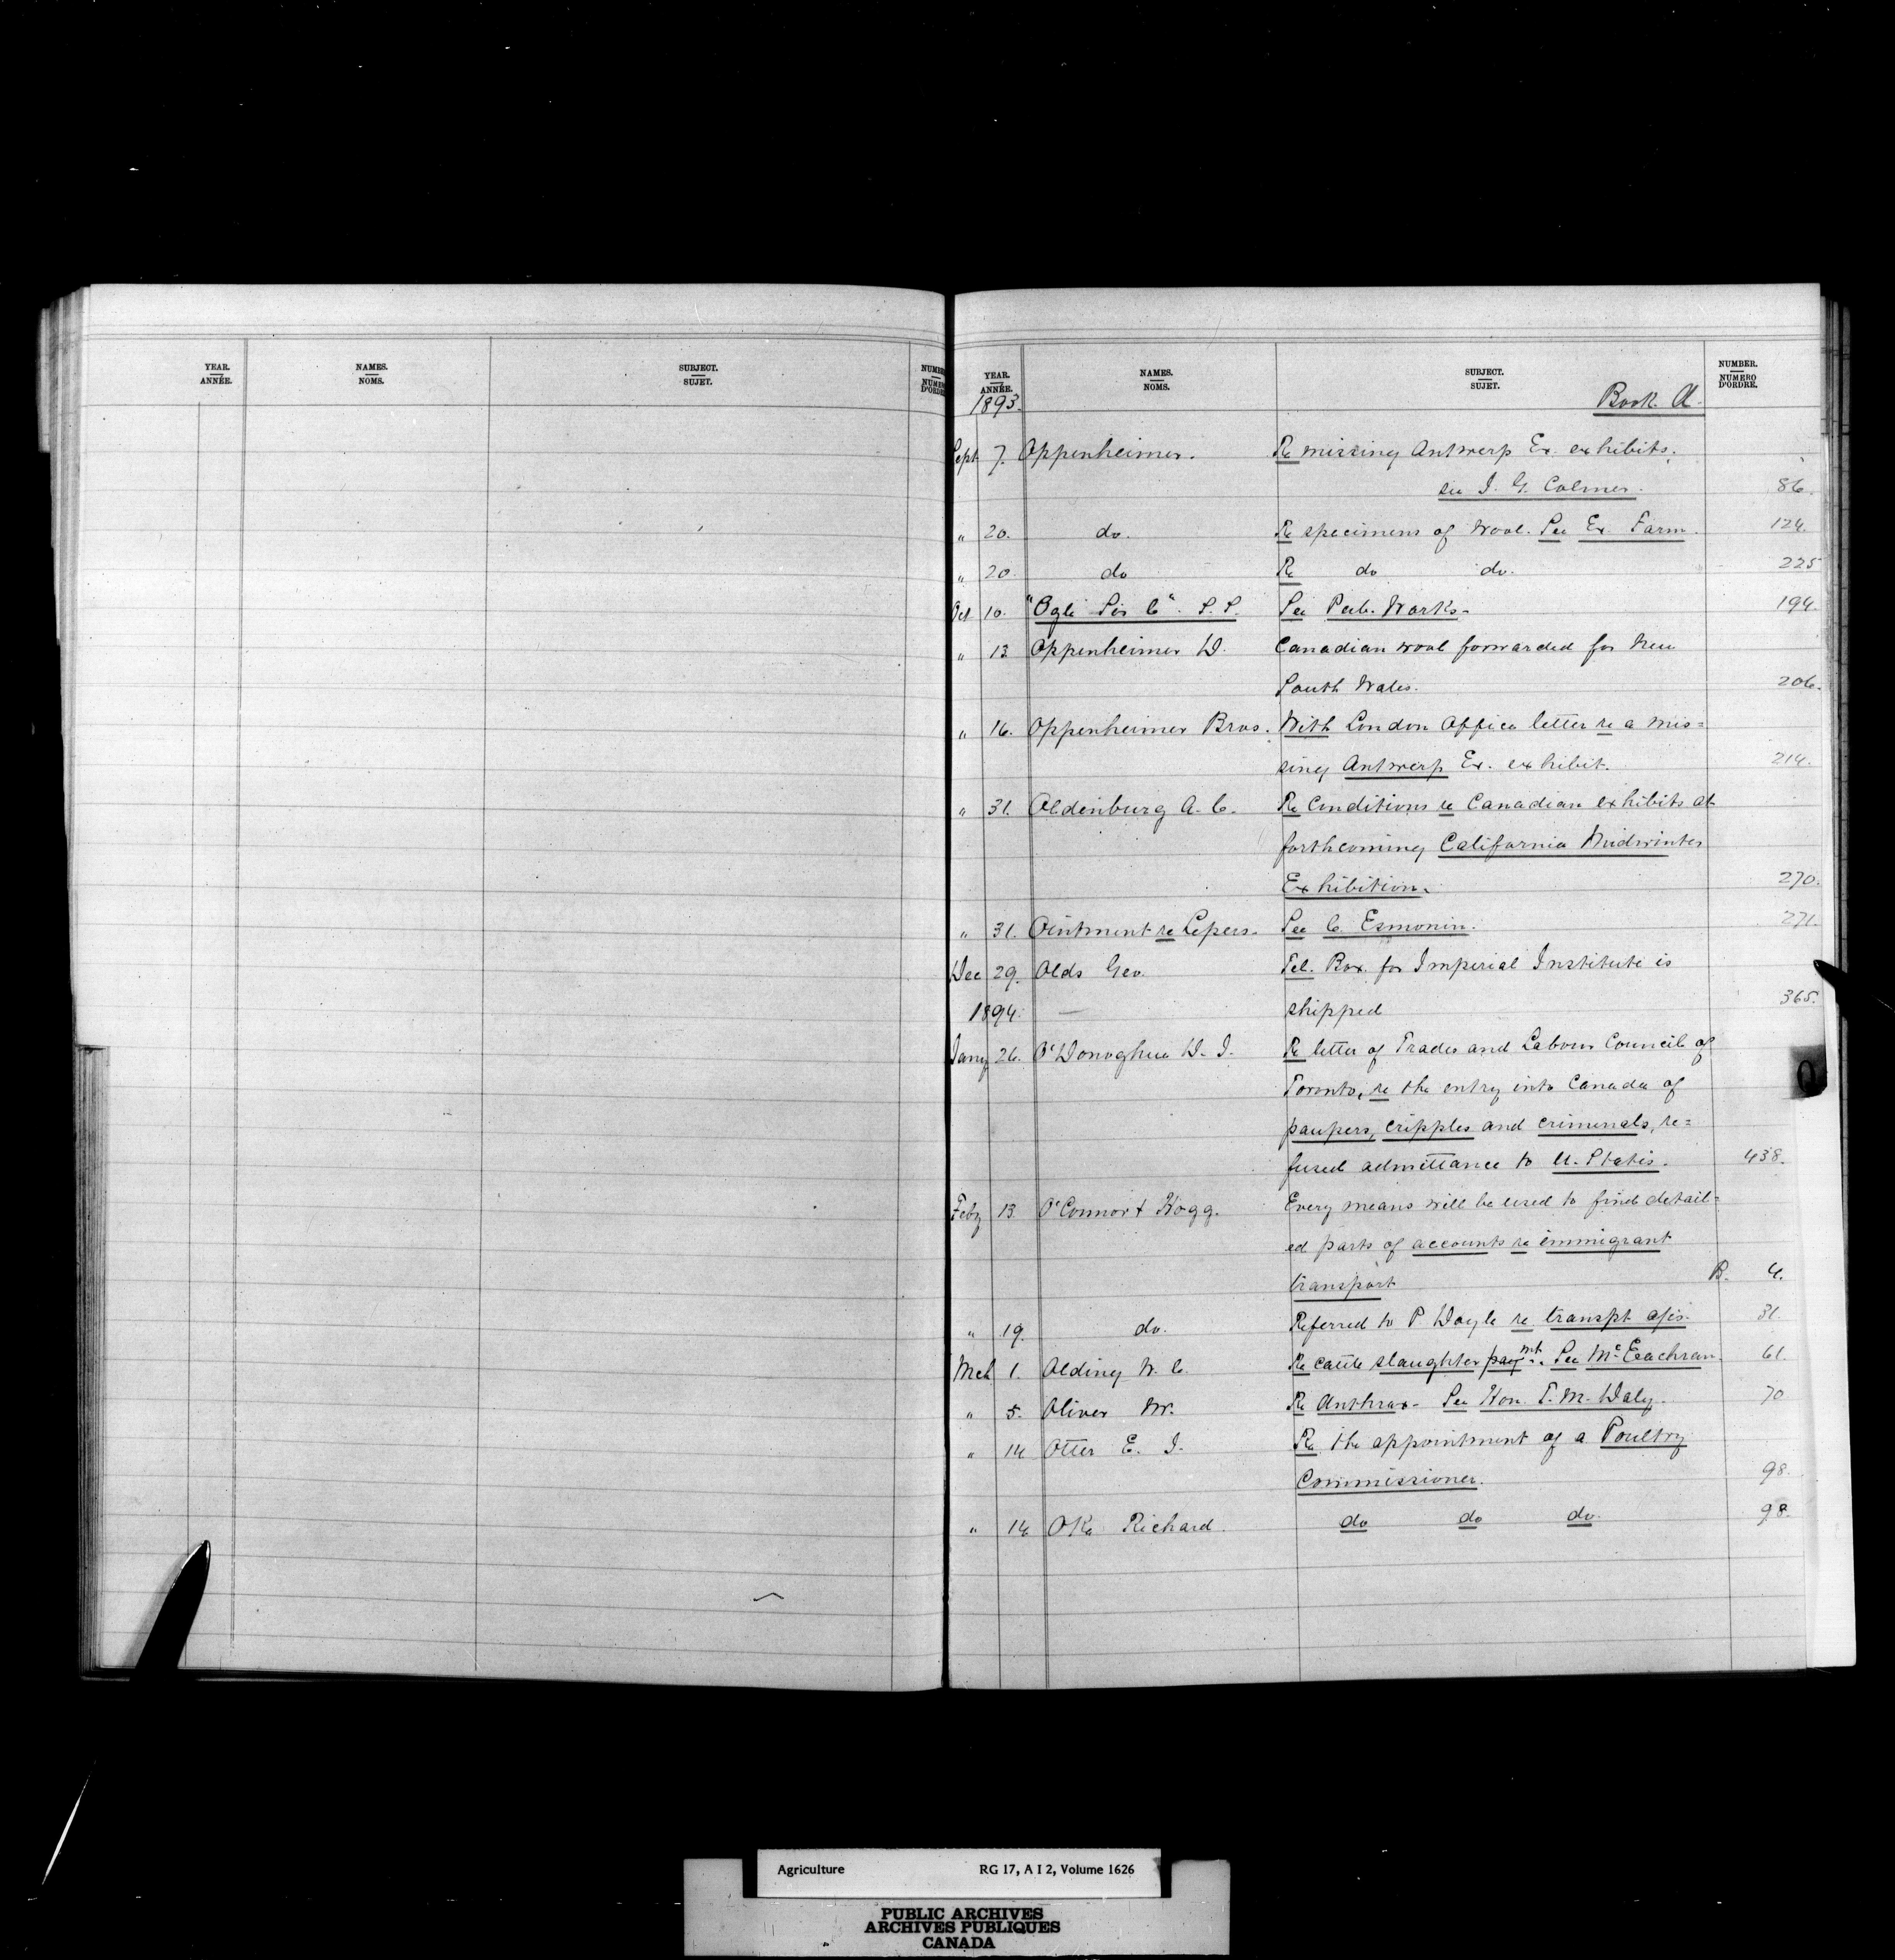 YEAR. NAMES. SUBJECT. NUMBE
ANNÉE. NOMS. SUJET. NUMÉR
D'ORDRE
YEAR. NAMES. SUBJECT. NUMBER.
ANNÉE. NOMS. SUJET. NUMÉRO D'ORDRE.
1893. Book A.
Sept 7. Oppenheimer. Re missing Antwerp Ex. exhibits.
see J. G. Colmer. 86.
" 20. do. Re specimens of wool. See Ex Farm. 124.
" 20. do Re do do. 225
Oct 10. "Ogle S.S. See Pub. Works- 194.
" 13 Oppenheimer D. Canadian wool forwarded for New
South Wales. 206.
" 16. Oppenheimer Bros. With London Office letter re a mis=
sing Antwerp Ex. exhibit. 214.
" 31. Oldenburg A. C. Re Conditions re Canadian exhibits at
forthcoming California Midwinter
Exhibition. 270.
" 31. Ointment re Lepers. See C. Esmonin. 271.
Dec 29. Olds Geo. Tel. Box. for Imperial Institute is
1894. shipped 365.
Jany 26. O'Donoghue D. J. Re letter of Trades and Labour Council of
Toronto, re the entry into Canada of
paupers, cripples and criminals, re=
fused admittance to U. States. 438.
Feby 13. O'Connor & Hogg. Every means will be used to find detail=
ed parts of accounts re immigrant
transport B. 4.
" 19. do. Referred to P Doyle re transpt a/cs. 31.
Mch 1. Olding N. C. Re cattle slaughter paymt. See McEachran. 61.
" 5. Oliver W. Re Anthrax- See Hon. T. M. Daly. 70
" 14 Otter E. J. Re the appointment of a Poultry
Commissioner. 98.
" 14 Oke Richard. do do do. 98.
O
Agriculture RG 17, A I 2, Volume 1626
PUBLIC ARCHIVES
ARCHIVES PUBLIQUES
CANADA